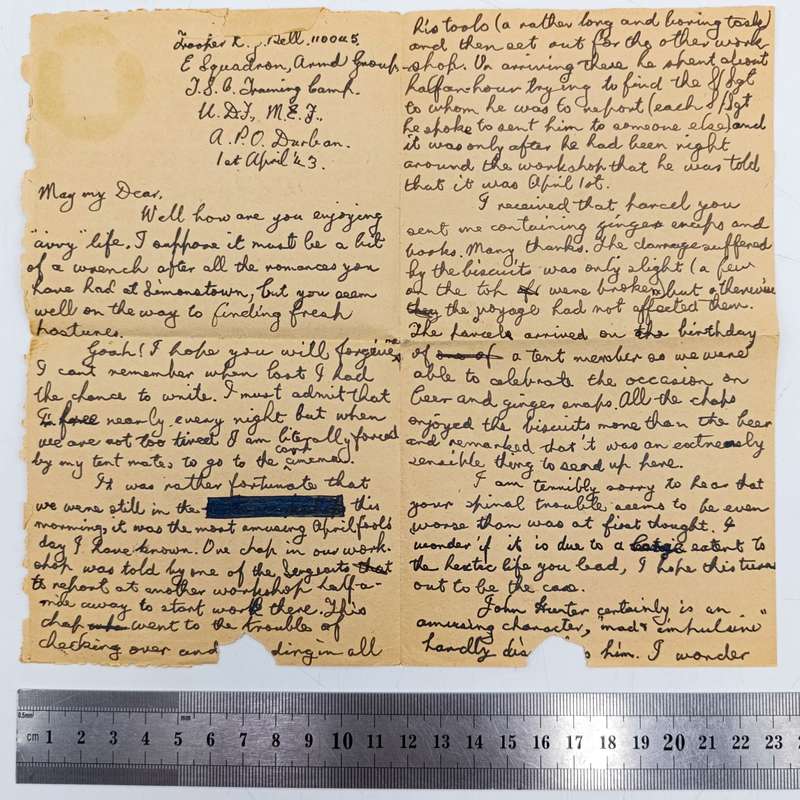 Trooper L. J. Bell. 110045.
E Squadron, Armd Group.
T.S.C. Training Camp.
U.D.F, M.E.F.,
A.P.O. Durban.
1st April 43.
May my Dear,
Well how are you enjoying
"ivvy" life. I suppose it must be a bit
of a wrench after all the romances you
have had at Simonstown, but you seem
well on the way to finding fresh
pastures.
Goah! I hope you will forgive me
I cant remember when last I had
the chance to write. I must admit that
I'm free nearly every night but when
we are not too tired I am literally forced
by my tent mates to go to the camp cinema.
It was rather fortunate that
we were still in the this
morning, it was the most amusing April fools
day I have known. One chap in our work-
shop was told by one of the Sergeants that
to report at another workshop half-a-
mile away to start work there. This
chap went to the trouble of
checking over and ding in all
his tools (a rather long and boring task)
and then set out for the other work-
shop. On arriving there he spent about
half an hour trying to find the S/Sgt
to whom he was to report (each S/Sgt
he spoke to sent him to someone else) and
it was only after he had been right
around the workshop that he was told
that it was April 1st.
I received that parcel you
sent me containing ginger snaps and
books. Many thanks. The damage suffered
by the biscuits was only slight (a few
on the top of were broken) but otherwise
they the voyage had not affected them.
The parcels arrived on the birthday
of one of a tent member so we were
able to celebrate the occasion on
beer and ginger snaps. All the chaps
enjoyed the biscuits more than the beer
and remarked that it was an extremely
sensible thing to send up here.
I am terribly sorry to hear that
your spinal trouble seems to be even
worse than was at first thought. I
wonder if it is due to a large extent to
the hectic life you lead, I hope this turns
out to be the case.
John Hunter certainly is an
amusing character, "mad & impulsive"
hardly dis him. I wonder
0.5mm 5mm
cm 1 2 3 4 5 6 7 8 9 10 11 12 13 14 15 16 17 18 19 20 21 22 23